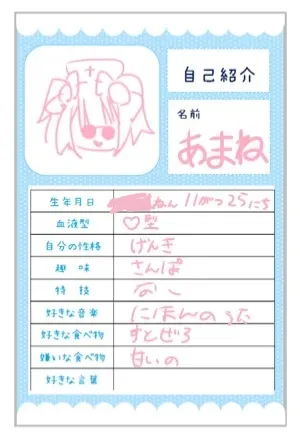 自己紹介
名前
あまね
生年月日 ねん 11がつ25にち
血液型 ♡型
自分の性格 げんき
趣味 さんぽ
特技 なし
好きな音楽 にほんのうた
好きな食べ物 すとぜろ
嫌いな食べ物 甘いの
好きな言葉